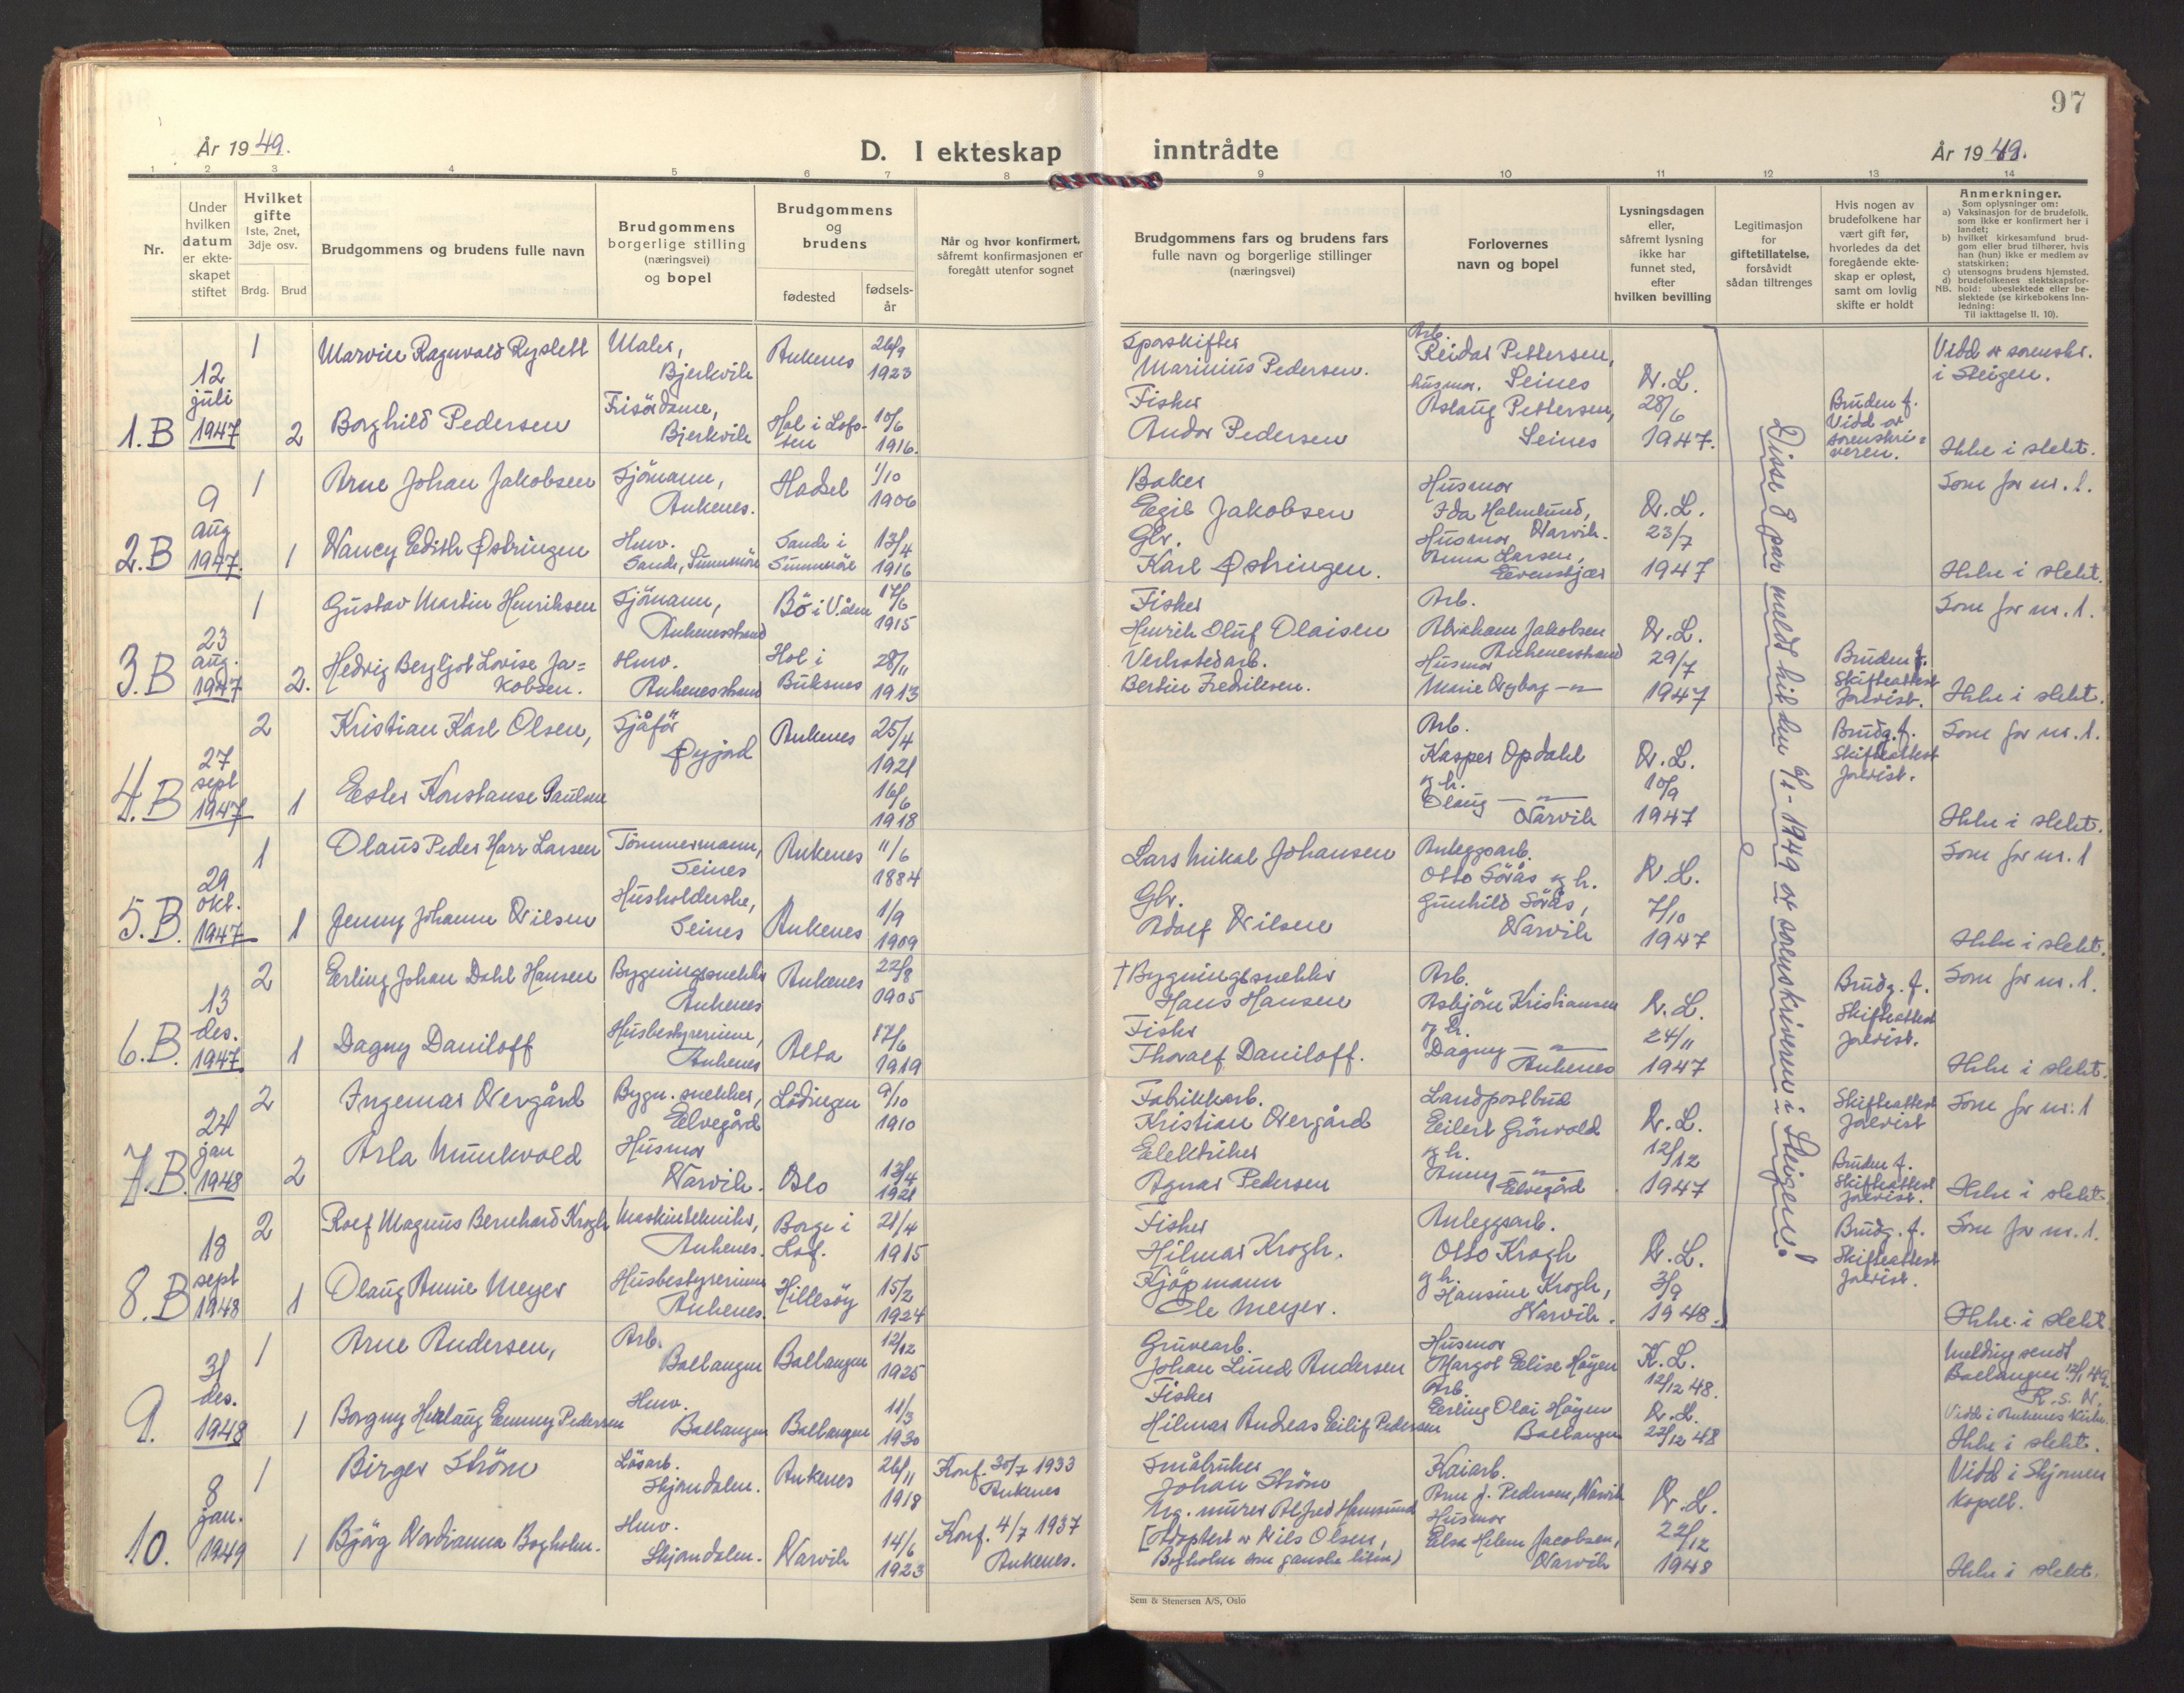 97
År 1949.
D. I ekteskap inntrådte
År 1949.
1 2 3 4 5 6 7 8 9 10 11 12 13 14
Nr.
Under hvilken datum er ekteskapet stiftet
Hvilket gifte
1ste, 2net, 3dje osv.
Brdg. Brud
Brudgommens og brudens fulle navn
Brudgommens borgerlige stilling (næringsvei) og bopel
Brudgommens og brudens
fødested
fødselsår
Når og hvor konfirmert, såfremt konfirmasjonen er foregått utenfor sognet
Brudgommens fars og brudens fars fulle navn og borgerlige stillinger (næringsvei)
Forlovernes navn og bopel
Lysningsdagen eller, såfremt lysning ikke har funnet sted, efter hvilken bevilling
Legitimasjon for giftetillatelse, forsåvidt sådan tiltrenges
Hvis nogen av brudefolkene har vært gift før, hvorledes da det foregående ekteskap er opløst, samt om lovlig skifte er holdt
Anmerkninger.
Som oplysninger om:
a) Vaksinasjon for de brudefolk, som ikke er konfirmert her i landet;
b) hvilket kirkesamfund brudgom eller brud tilhører, hvis han (hun) ikke er medlem av statskirken;
c) utensogns brudens hjemsted.
d) brudefolkenes slektskapsforhold: ubeslektede eller beslektede (se kirkebokens innledning:
NB. Til iakttagelse II. 10).
1.B 12 juli 1947
1 Marvin Ragnvald Ryslett Maler, Bjerkvik Ankenes 26/9 1923
2 Borghild Pedersen Frisördame, Bjerkvik Hol i Lofoten 10/6 1916.
Sporskifter Marinius Pedersen.
Fisker Andor Pedersen
Arb. Reidar Pettersen, Seines
husmor. Aslaug Pettersen, Seines
N.L. 28/6 1947.
Bruden f. Vidd av sorenskriveren.
Vidd av sorenskr. i Steigen.
Ikke i slekt.
2.B 9 aug 1947
1 Arne Johan Jakobsen Sjömann, Ankenes. Hadsel 1/10 1906
1 Nancy Edith Østringen Husv. Sande, Sunnmöre Sande i Sunnmöre 13/4 1916
Baker Egil Jakobsen
Gbr. Karl Østringen.
Husmor Ida Halmlund, Narvik.
Husmor Anna Larsen, Evenskjær
N.L. 23/7 1947
Som for nr. 1.
Ikke i slekt.
3.B 23 aug. 1947
1 Gustav Martin Henriksen Sjömann, Ankenesstrand Bö i V.ålen 17/6 1915
2. Hedvig Bergljot Lovise Jakobsen. Husv. Ankenesstrand Hol i Buksnes 28/11 1913
Fisker Henrik Oluf Olaisen
Verkstedarb. Bertin Fredriksen.
Arb. Abraham Jakobsen Ankenesstrand
Husmor Marie Nyborg —"—
N.L. 29/7 1947
Bruden f. Skifteattest forevist.
Som for nr. 1.
Ikke i slekt.
4.B 27 sept 1947
2 Kristian Karl Olsen, Sjåför Øyjord Ankenes 25/4 1921
1 Ester Konstanse Paulsen 16/6 1918
Arb. Kasper Opdahl
og h. Olaug —"— Narvik
N.L. 10/9 1947
Brudg. f. Skifteattest forevist.
Som for nr. 1.
Ikke i slekt.
5.B. 29 okt. 1947
1 Olaus Peder Harr Larsen Tömmermann, Seines Ankenes 11/6 1884
1 Jenny Johanne Nilsen Husholderske, Seines Ankenes 1/9 1909
Lars Mikal Johansen
Gbr. Adolf Nilsen
Anleggsarb. Otto Sörås og h.
Gunhild Sörås, Narvik
N.L. 7/10 1947
Som for nr. 1
Ikke i slekt.
6.B. 13 des. 1947
2 Erling Johan Dahl Hansen Bygningssnekker Ankenes Ankenes 22/8 1905
1 Dagny Daniloff Husbestyrerinne, Ankenes Alta 17/6 1919
† Bygningssnekker Hans Hansen
Fisker Thoralf Daniloff.
Arb. Asbjörn Kristiansen
og h. Dagny —"— Ankenes
N.L. 24/11 1947
Brudg. f. Skifteattest forevist.
Som for nr. 1.
Ikke i slekt.
7.B. 24 jan 1948
2 Ingemar Nergård Bygn. snekker, Elvegård Lödingen 9/10 1910
2 Asla Munkvold Husmor Narvik. Oslo 13/4 1921
Fabrikkarb. Kristian Nergård
Elektriker Agnar Pedersen
Landpostbud Eilert Grönvold
og h. Anny —"— Elvegård
N.L. 12/12 1947
Skifteattest forevist
Bruden f. Skifteattest forevist.
Som for nr. 1
Ikke i slekt.
8.B 18 sept 1948
2 Rolf Magnus Bernhard Krogh Maskintekniker, Ankenes. Borge i Lof. 21/4 1915
1 Olaug Annie Meyer Husbestyrerinne Ankenes. Hillesöy 15/2 1924
Fisker Hilmar Krogh.
Kjöpmann Ole Meyer.
Anleggsarb. Otto Krogh
og h. Hansine Krogh, Narvik.
N.L. 3/9 1948.
Brudg. f. Skifteattest forevist.
Som for nr. 1.
Ikke i slekt
Disse 8 par meldt hit den 6/1-1949 av sorenskriveren i Steigen!
9. 31 des. 1948
1 Arne Andersen, Arb. Ballangen Ballangen 12/12 1925
1 Borgny Herlaug Emmy Pedersen Husv. Ballangen Ballangen 11/3 1930
Gruvearb. Johan Lund Andersen
Fisker Hilmar Andreas Eilif Pedersen
Husmor Margot Elise Høyen
Arb. Erling Olai Høyen Ballangen
K.L. 12/12 48.
N.L. 22/12 48
Melding sendt Ballangen 12/1 49. R.S.N.
Vidd i Ankenes kirke.
Ikke i slekt.
10. 8 jan. 1949
1 Birger Ström Lösarb. Skjomdalen. Ankenes 26/11 1918 Konf. 30/7 1933 Ankenes
1 Bjørg Nordianna Bogholm. Husv. Skjomdalen. Narvik 14/6 1923 Konf. 4/7 1937 Ankenes.
Småbruker Johan Ström
Ug. murer Alfred Hamsund
[Adoptert av Nils Olsen, Bogholm som ganske liten)
Kaiarb. Arne J. Pedersen, Narvik
Husmor Elsa Helene Jacobsen, Narvik
N.L. 22/12 1948
Vidd i Skjomen kapell.
Ikke i slekt.
Sem & Stenersen A/S, Oslo